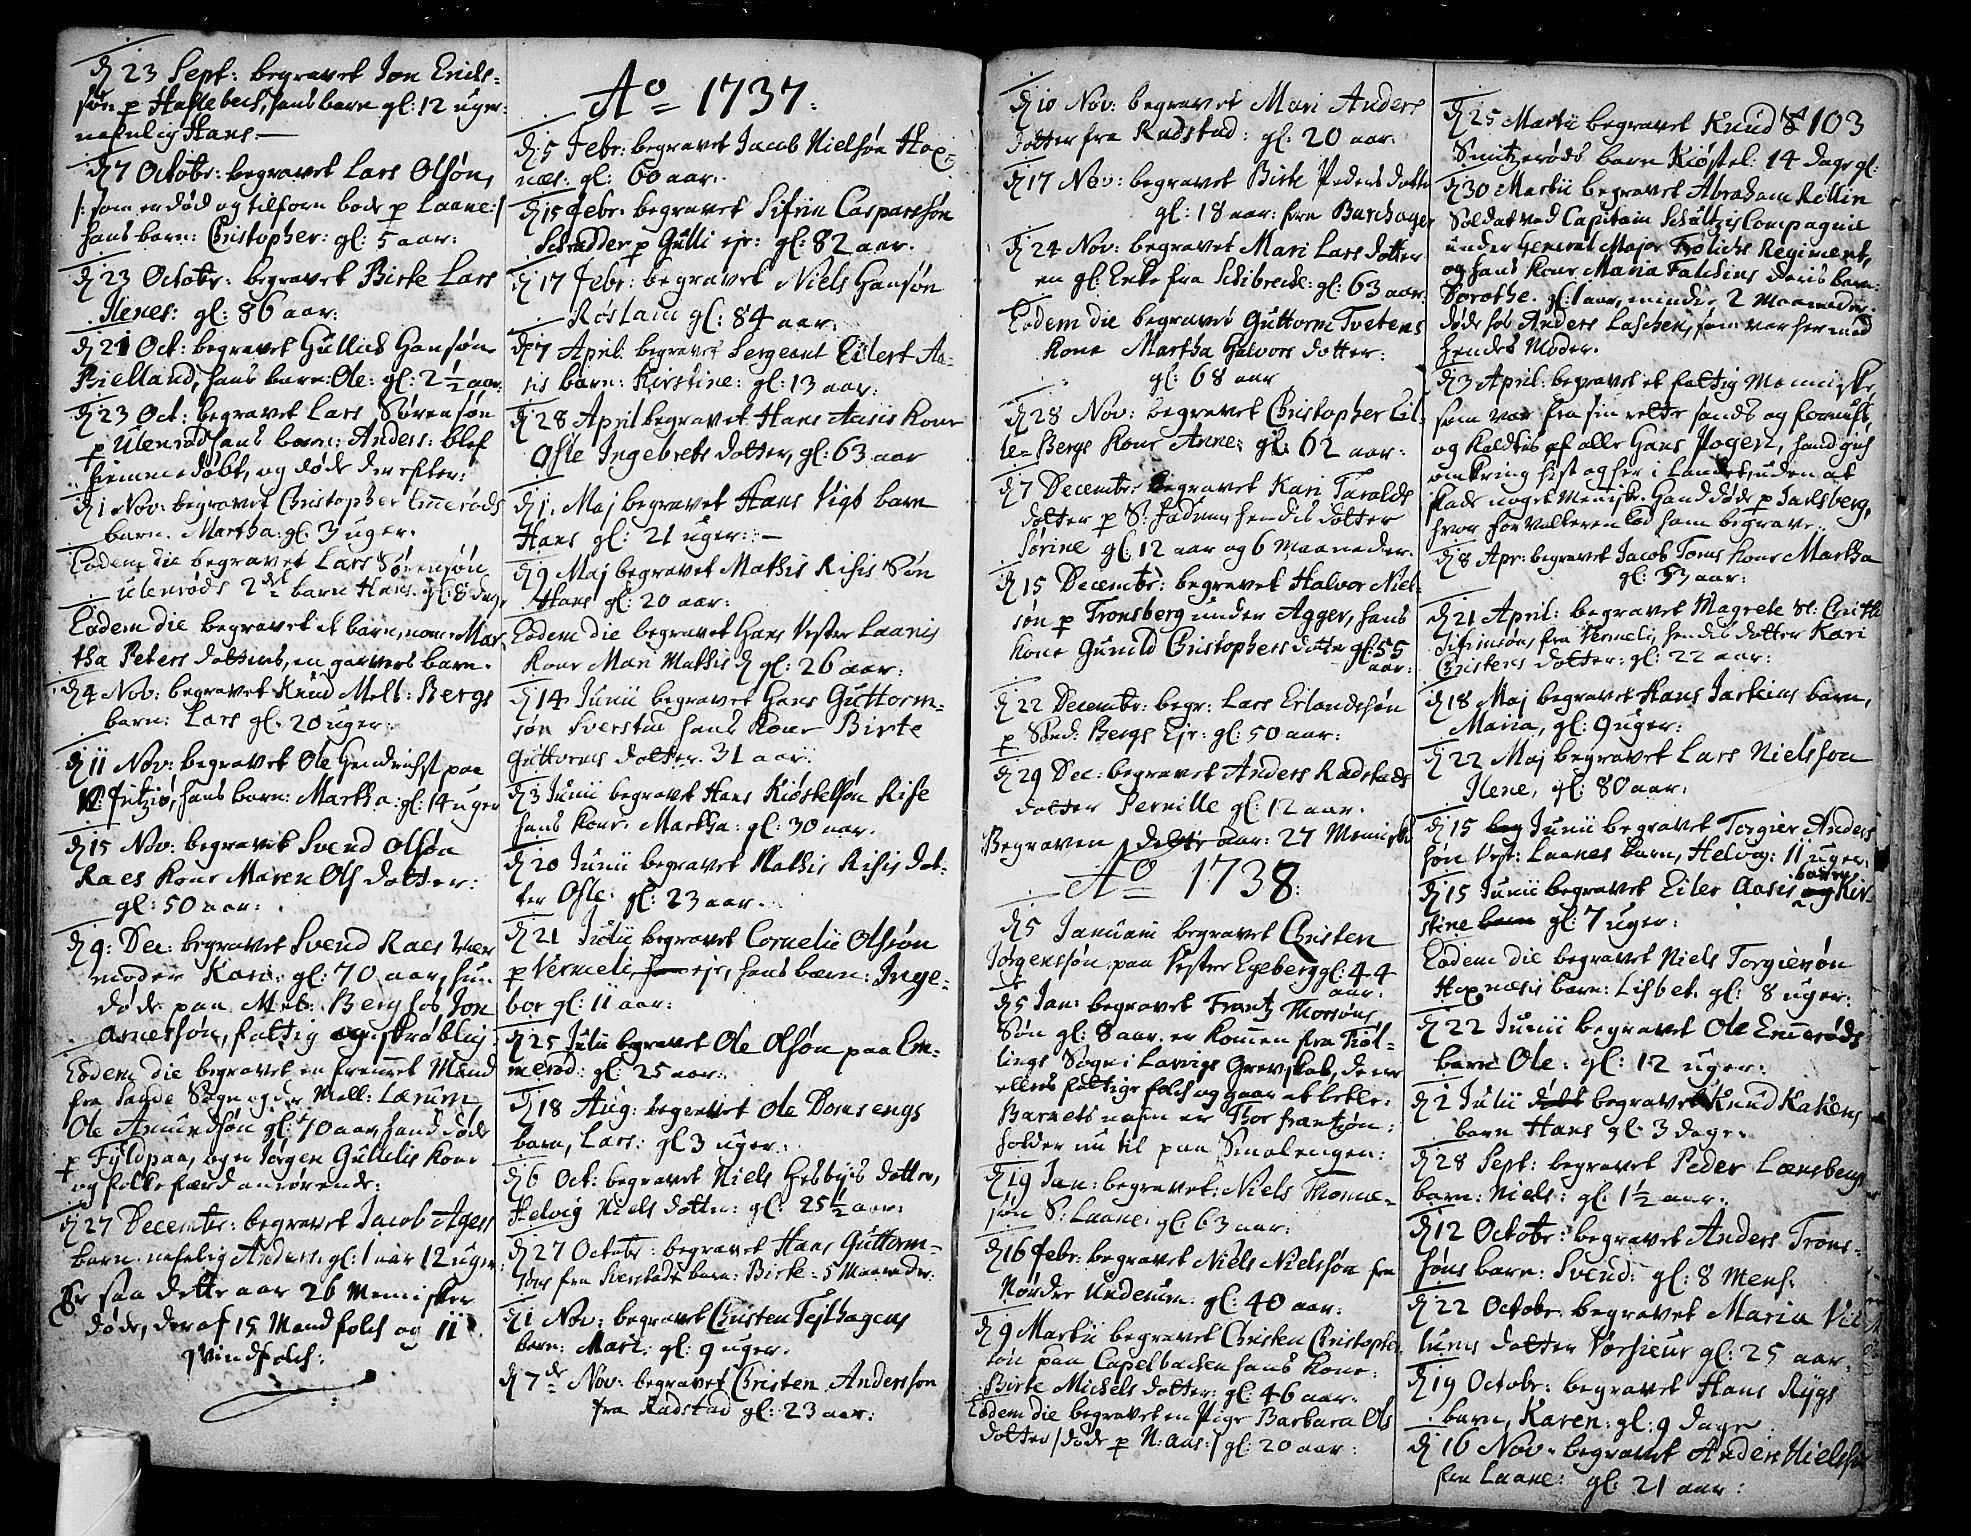 d 23 Sept: begravet Jon Erichs-
søn p Haslebech, hans barn gl: 12 uger
nafnlig Hans.
d 7 Octobr: begravet Lars Olsøns
/: som er død og tilforn bode p Laane:/
hans barn: Christopher: gl: 5 aar:
d 23 Octobr: begravet Birte Lars
Ilenes: gl: 86 aar:
d 21 Oct: begravet Gulliks Hansøns
Bielland, hans barn: Ole: gl: 2 1/2 aar
d 23 Oct: begravet Lars Sørensøn
p Ulenrød hans barn: Anders: blef
hiemmedøbt, og døde derefter:
d 1 Nov: begravet Christopher Emerøds
barn. Martha: gl: 3 uger.
Eodem die begravet Lars Sørensøn
ulenrøds 2det barn Hans. gl: 8 dage
Eodem die begravet et barn, nom: Mar-
tha Peters dotters, en garvers barn.
d 4 Nov: begravet Knud Mell: Bergs
barn: Lars gl. 20 uger:
d 11 Nov: begravet Ole Hendrichst paa
hans barn: Martha: gl: 14 uger
d 15 Nov: begravet Svend Olsøn
Raes Kone Maren Ols dotter:
gl: 50 aar:
d 9: Dec: begravet Svend Raes Vær
moder Kari: gl: 70 aar, hun
døde paa Mel: Berg hos Jon
Arnessøn, fattig og skrøblig
Eodem die begravet en fremet Mand
fra Sande Sogn og der Mell: Lærum
Ole Amundsøn gl: 70 aar, hand døde
p Fyldpaa, og er Jørgen Gullis Kone
og folke færd anrørende:
d 27 Decembr: begravet Jacob Agers
barn. nafnlig Anders: gl: 1 aar 12 uger
Er saa dette aar 26 Mennisker
døde, deraf 15 Mandfolch og 11
Qvindfolch:
Ao 1737:
d 5 Febr: begravet Jacob Nielsøn Hox-
næs: gl: 60 aar:
d 15 Febr: begravet Sifrin Casparssøn
Schrædder p Gulli eje: gl: 82 aar.
d 17 Febr: begravet Niels Hansøn
Røslani gl: 84 aar:
d 7 April: begravet Sergeant Eilert Aa-
sis barn: Kirstine: gl: 13 aar:
d 28 April begravet Hans Aasis Kone
Osle Ingebrets dotter, gl: 63 aar
d 1. Maj begravet Hans Vigs barn
Hans gl: 21 uger:
d 9 Maj begravet Mathis Risis Søn
Hans gl: 20 aar:
Eodem die begravet Hans Vester Laanis
Kone Mari Mathis d gl: 26 aar:
d 14 Junii begravet Hans Guttorm-
søn Sverstad hans Kone Birte
Guttorms dotter. 31 aar:
d 3 Junii begravet Hans Kiøstelsøn Rise
hans Kone Martha: gl: 30 aar.
d 20 Junii begravet Mathis Risis dot-
ter Osle: gl: 23 aar.
d 21 Julii begravet Cornelii Olssøn
p Vermeli, eje, hans barn: Inge-
bor gl: 11 aar:
d 25 Julii begravet Ole Olsøn paa Em-
merød: gl: 25 aar:
d 18 Aug: begravet Ole Domsengs
barn, Lars: gl 3 uger:
d 6 Oct: begravet Niels Hesbyis dotter,
Helvig Niels dotter: gl: 25 1/2 aar:
d 27 Octobr: begravet Hans Guttorm-
søns fra Sverstads barn: Birte: 5 Maaneder:
d 1 Nov: begravet Christen Fejlhagens
barn: Mari: gl: 9 uger.
d 7de Nov: begravet Christen Anderssøn
fra Radstad gl: 23 aar:
d 10 Nov: begravet Mari Anders
dotter fra Radstad: gl: 20 aar.
d 17 Nov: begravet Birte Peders dotter
gl: 18 aar: fra Barchager
d 24 Nov: begravet Mari Lars dotter
en gl: Enke fra Schibrede: gl: 63 aar
Eodem die begravet Guttorm Tvetens
Kone Martha Halvors dotter:
gl: 68 aar
d 28 Nov: begravet Christopher Lil-
le=Bergs Kone Anne: gl: 62 aar:
d 7 Decembr: begravet Kari Taralds
dotter p S: hendis dotter
Sørine gl: 12 aar og 6 Maaneder.
d 15 Decembr: begravet Halvor Niel-
søn p Tronsberg under Agger, hans
Kone Gunild Christophers dotter gl: 55
aar:
d 22 Decembr: begr: Lars Erlandssøn
p Sønd: Bergs Eje: gl: 50 aar:
d 29 Dec: begravet Anders Radstads
dotter Pernille gl: 12 aar.
Begraven dette aar: 27 Mennisker
Ao 1738:
d 5 Januarii begravet Christen
Jørgenssøn paa Vester Egeberg gl: 44
aar:
d 5 Jan: begravet Frantz Thorsøns
Søn gl: 8 aar. er kommen fra Tiøl-
lings Sogn i Lavrigs Grevskab, de er
ellers fattige folch og gaar at betle.
Barnets nafn er Thor Frantzøn:
holder nu til paa Smalengen:
d 19 Jan: begravet: Niels Thomæ-
søn S: Laane: gl: 63 aar:
d 16 Febr: begravet Niels Nielssøn fra
Nørdre Underum: gl: 40 aar:
d 9 Martii begravet Christen Christophe-
søn paa Capelbachen hans Kone:
Birte Michels dotter: gl: 46 aar:
Eodem die begravet en Pige Barbara Ols
dotter /døde p N: Aas:/ gl: 20 aar:
103
d 25 Martii begravet Knud
Smitzrøds barn Kiøstel: 14 dage gl:
d 30 Martii begravet Abraham Rellin
Soldat ved Capitain Schultzis Compagnie
under General Major Frølichs Regiment,
og hans Kone Maria Falchins deris barn:
Dorothe. gl: 1 aar, mindre 2 Maaneder.
døde hos Anders Laschen, som var her med
hendes Moder.
d 3 April: begravet et fattig Menniske,
som var fra sin rette sands og fornuft,
og kaldtis af alle Hans Pogen, hand gich
omkring hist og her i Landet, uden at
skade noget Menniske. Hand døde p Jarlsberg,
hvor forvalteren lod ham begrave.
d 8 Apr: begravet Jacob Toms Kone Martha
gl: 53 aar:
d 21 April: begravet Magrete
Sifrinsøns fra Vermeli, hendes dotter Kari
Christens dotter: gl: 22 aar:
d 18 Maj begravet Hans Jarheims barn,
Maria, gl: 9 uger:
d 22 Maj begravet Lars Nielssøn
Ilene, gl: 80 aar:
d 15 Junii begravet Torgier Anders
søn Vest: Laanes barn, Helvig: 11 uger:
d 15 Junii begravet Eiler Aasis barn Kir-
stine gl: 7 uger:
Eodem die begravet Niels Torgiersøn
Hoxnæsis barn: Lisbet. gl: 8 uger:
d 22 Junii begravet Ole Emerøds
barn Ole: gl: 12 uger:
d 2 Julii begravet Knud Kakens
barn Hans gl: 3 dage.
d 28 Sept: begravet Peder Lænsbergs
barn: Niels: gl: 1 1/2 aar:
d 12 Octobr: begravet Anders Trons-
søns barn: Svend: gl: 8 Mens:
d 22 Octobr: begravet Maria Vil-
lums dotter gl: 25 aar.
d 19 Octobr: begravet Hans Rygs
barn, Karen: gl: 9 dage
d 16 Nov: begravet Anders Nielssøn
fra Laane: gl: 21 aar: